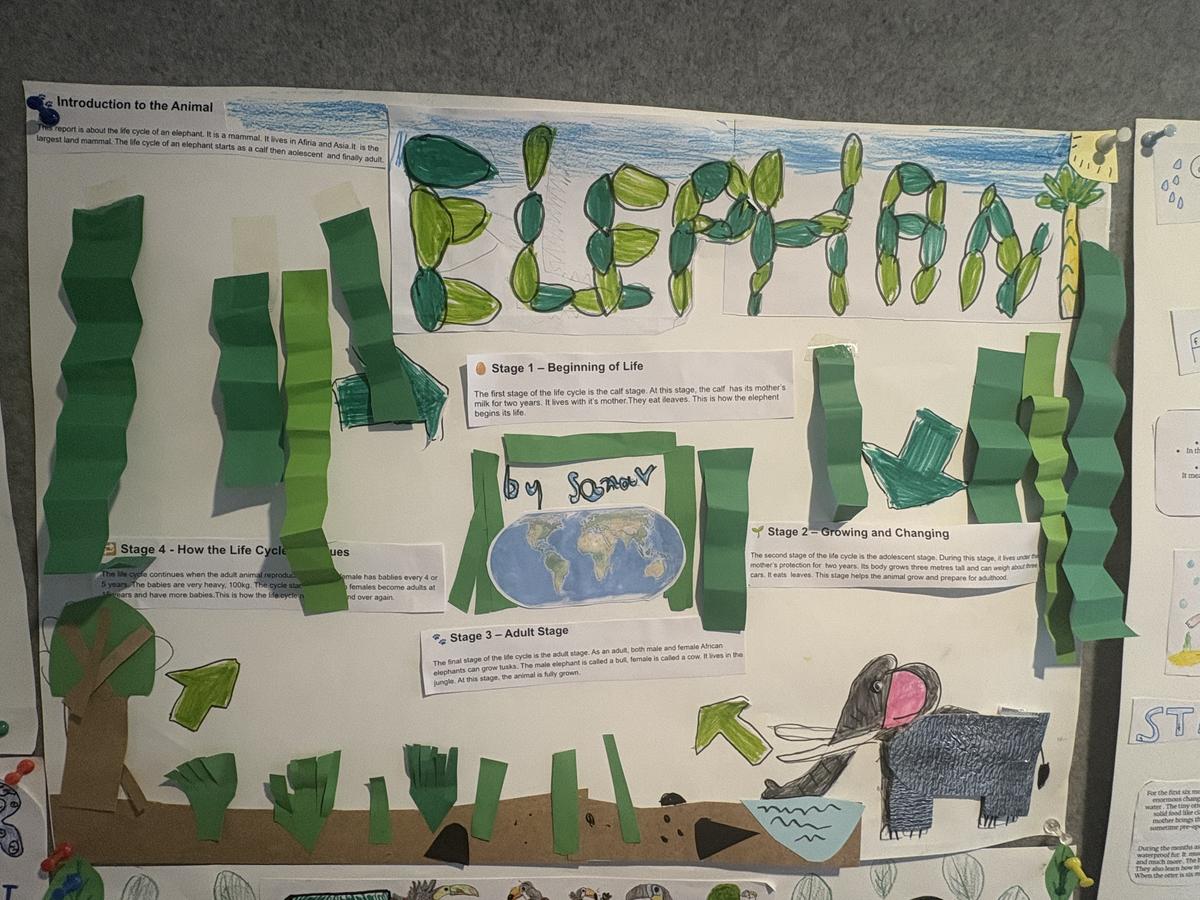 Introduction to the Animal
This report is about the life cycle of an elephant. It is a mammal. It lives in Afiria and Asia.It is the
largest land mammal. The life cycle of an elephant starts as a calf then aolescent and finally adult.
ELEPHANT
Stage 1 – Beginning of Life
The first stage of the life cycle is the calf stage. At this stage, the calf has its mother's
milk for two years. It lives with it's mother.They eat leaves. This is how the elephant
begins its life.
by
Stage 2 – Growing and Changing
The second stage of the life cycle is the adolescent stage. During this stage, it lives under
mother's protection for two years. Its body grows three metres tall and can weigh about three
cars. It eats leaves. This stage helps the animal grow and prepare for adulthood.
Stage 4 - How the Life Cycle
The life cycle continues when the adult animal female has bablies every 4 or
5 years. The babies are very heavy, 100kg. The cycle females become adults at
years and have more babies.This is how the life cycle over again.
Stage 3 – Adult Stage
The final stage of the life cycle is the adult stage. As an adult, both male and female African
elephants can grow tusks. The male elephant is called a bull, female is called a cow. It lives in the
jungle. At this stage, the animal is fully grown.
In th
It mea
ST
For the first six
enormous chang
water . The tiny
solid food like
mother brings
sometime
During the months
waterproof fur. It
and much more. The
They also learn how to
When the otter is six